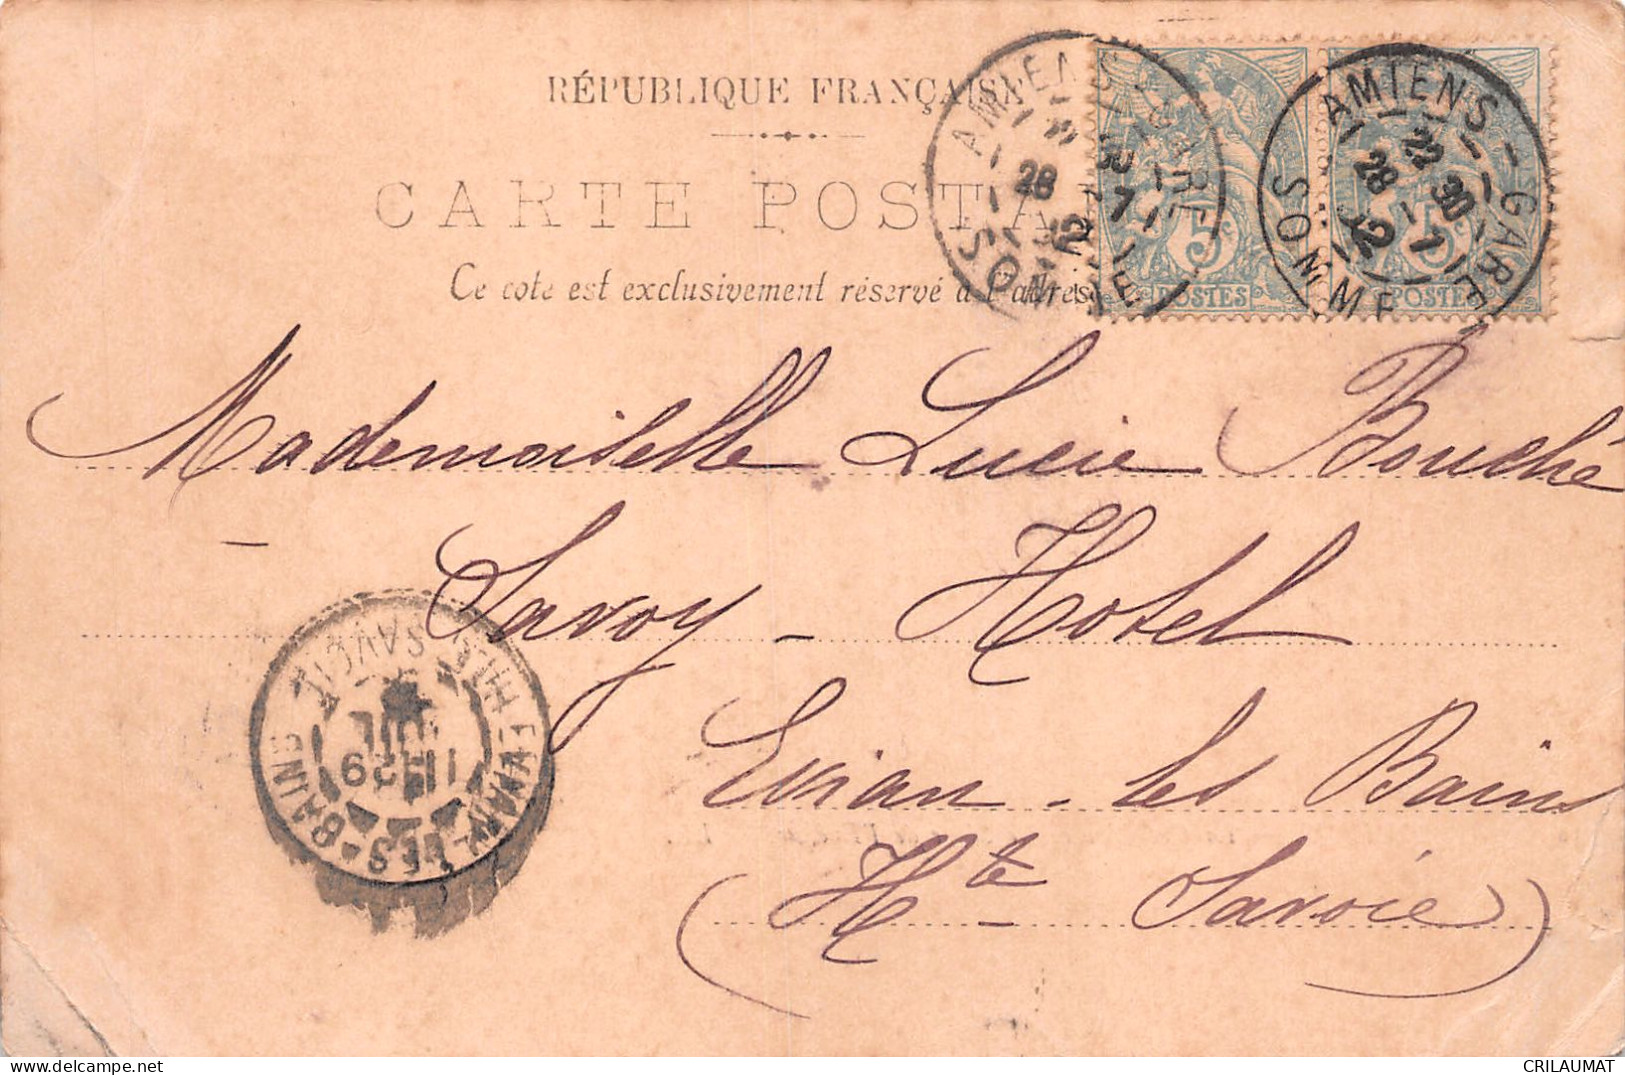 RÉPUBLIQUE FRANÇAISE
CARTE POSTA
Ce coté est exclusivement réservé à l'adresse
AMIENS GARE
28 7 02
SOMME
5c
POSTES
AMIENS - GARE
22 30
28 - 7
02
SOMME
5c
POSTES
Mademoiselle Lucie Bouché
Savoy - Hotel
Evian - les Bains
(Hte Savoie)
EVIAN-LES-BAINS
HTE SAVOIE
11 29
JUIL
CRILAUMAT